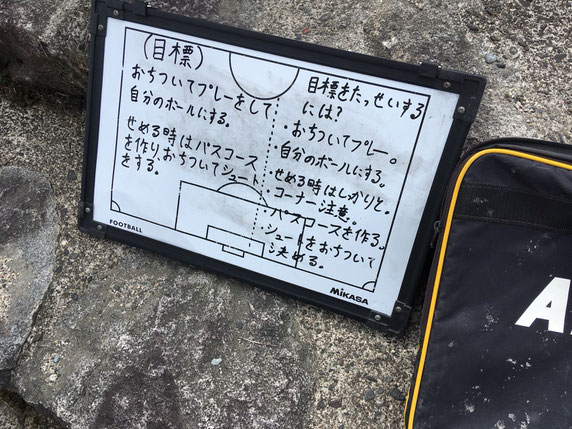 (目標)
おちついてプレーをして
自分のボールにする。
せめる時はパスコース
を作り、おちついてシュート
をする。
目標をたっせいする
には?
・おちついてプレー。
・自分のボールにする。
・せめる時はしかりと。
・コーナー注意。
・パスコースを作る。
・シュートをおちついて
決める。
FOOTBALL
MIKASA
A